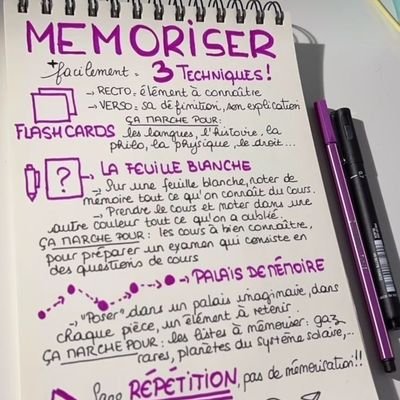 MEMORISER
+facilement = 3 TECHNIQUES !
→ RECTO : élément à connaître
→ VERSO : sa définition, son explication
FLASHCARDS
ÇA MARCHE POUR :
les langues, l'histoire, la
philo, la physique, le droit...
?
LA FEUILLE BLANCHE
→ Sur une feuille blanche, noter de
mémoire tout ce qu'on connaît du cours.
→ Prendre le cours et noter dans une
autre couleur tout ce qu'on a oublié.
ÇA MARCHE POUR : les cours à bien connaître,
pour préparer un examen qui consiste en
des questions de cours
PALAIS DE MÉMOIRE
→ "Poser" dans un palais imaginaire, dans
chaque pièce, un élément à retenir.
ÇA MARCHE POUR : les listes à mémoriser : gaz
rares, planètes du système solaire,...
Sans RÉPÉTITION, pas de mémorisation !!